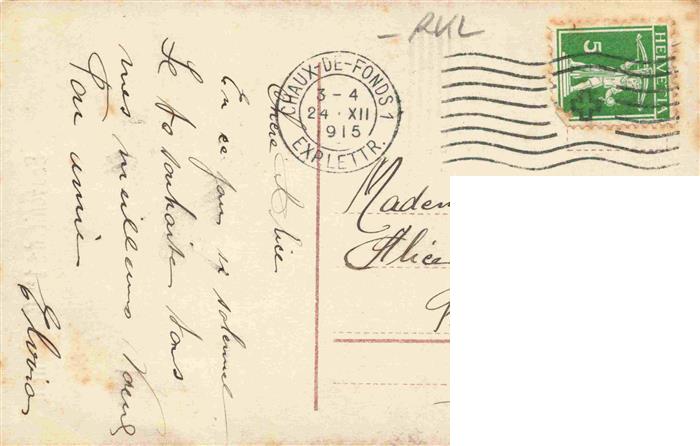 RVL
HELVETIA
5
CHAUX-DE-FONDS 1
3-4
24 · XII
915
EXPLETTR.
Chère Alice
En ce jour si solennel
Je te souhaite tous
mes meilleurs vœux
Ton amie
Madem
Alice